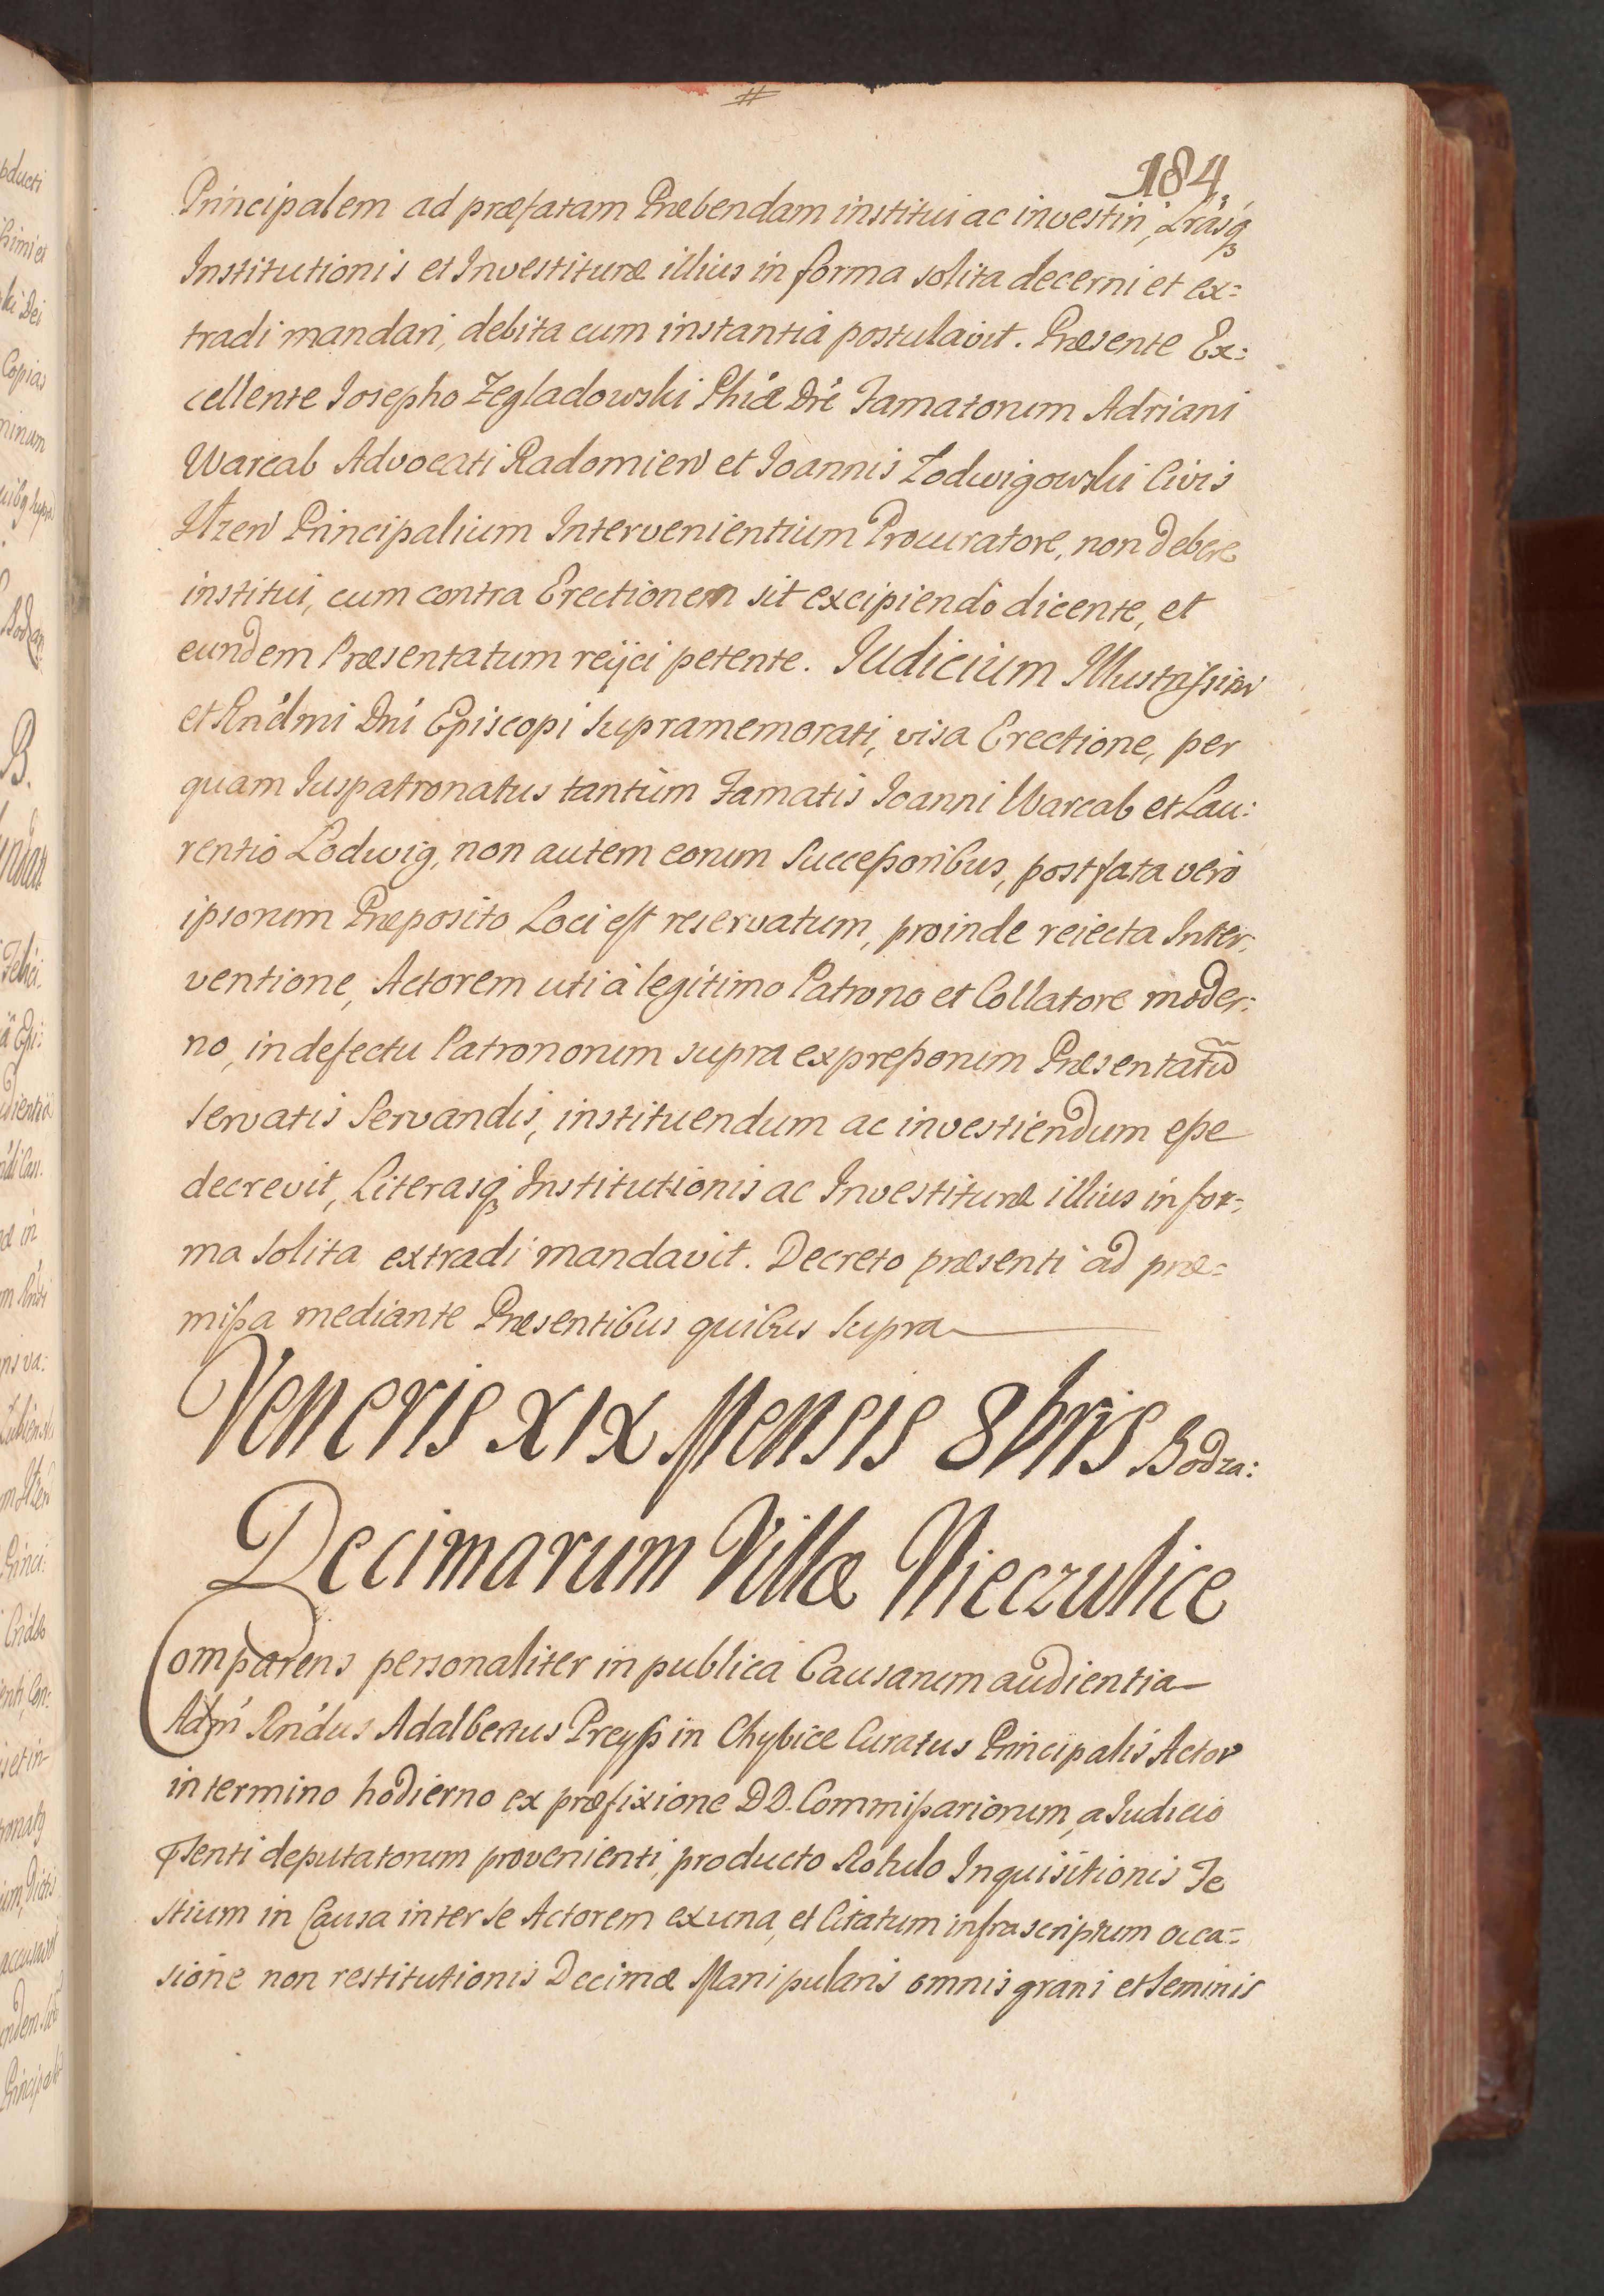 184.
Principalem ad præfatam Præbendam institui ac investiri, Lrasq
Institutionis et Investituræ illius in forma solita decerni et ex=
tradi mandari, debita cum instantia postulavit. Præsente Ex:
cellente Iosepho Zegladowski Phiæ Dre Famatorum Adriani
Warcab Advocati Radomien et Ioannis Lodwigowski Civis
Ilzen Principalium Intervenientium Procuratore, non debere
institui, cum contra Erectionem sit excipiendo dicente, et
eundem Præsentatum reijci petente. Iudicium Illustrissimi
et Rndmi Dni Episcopi supramemorati, visa Erectione, per
quam Iuspatronatus tantùm Famatis Ioanni Warcab et Lau:
rentio Lodwig, non autem eorum Successoribus, post fata verò
ipsorum Præposito Loci est reservatum, proinde reiecta Inter:
ventione, Actorem uti à legitimo Patrono et Collatore moder:
no, in defectu Patronorum supra expressorum Præsentatũ
servatis servandis, instituendum ac investiendum esse
decrevit, Literasq Institutionis ac Investituræ illius in for=
ma solita extradi mandavit. Decreto præsenti ad præ=
missa mediante Præsentibus quibus supra
Veneris XIX Mensis 8bris Bodza:
Decimarum Villæ Nieczulice
Comparens personaliter in publica Causarum audientia
Adm Rndus Adalbertus Preyss in Chybice Curatus Principalis Actor
in termino hodierno ex præfixione DD. Commissariorum, a Iudicio
psenti deputatorum provenienti, producto Rotulo Inquisitionis Te
stium in Causa inter se Actorem ex una, et Citatum infrascriptum occa=
sione non restitutionis Decimæ Manipularis omnis grani et seminis